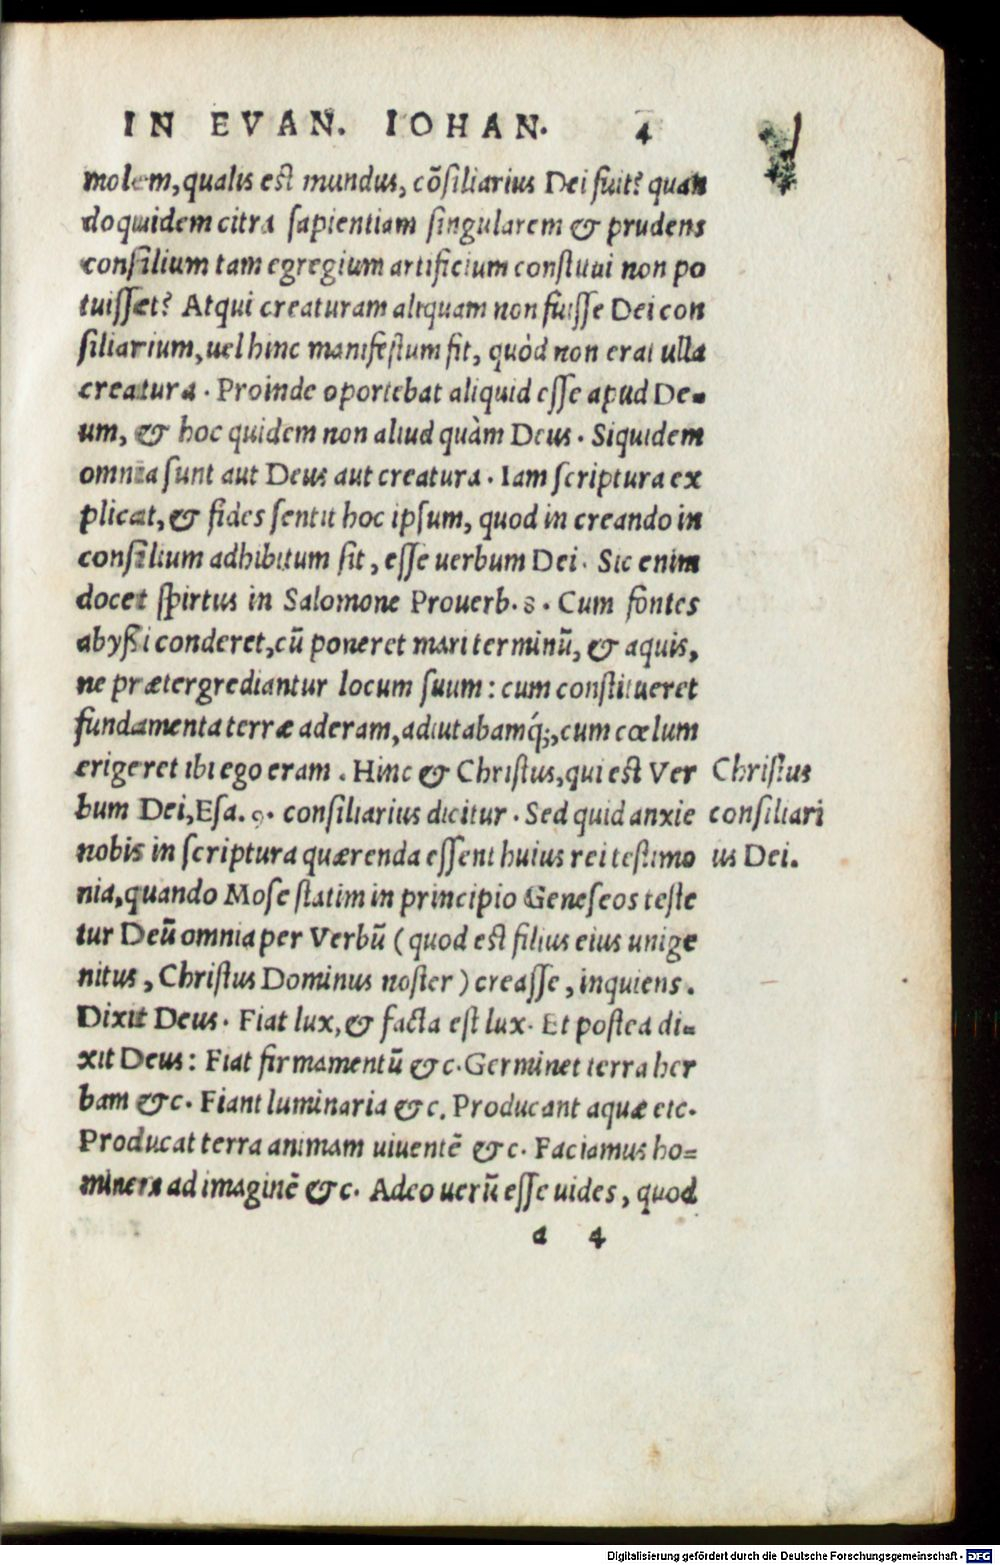 IN EVAN. IOHAN. 4
molem, qualis est mundus, cõsiliarius Dei fuit? quan
doquidem citra sapientiam singularem & prudens
consilium tam egregium artificium constitui non po
tuisset? Atqui creaturam aliquam non fuisse Dei con
siliarium, uel hinc manifestum fit, quòd non erat ulla
creatura. Proinde oportebat aliquid esse apud De-
um, & hoc quidem non aliud quàm Deus. Siquidem
omnia sunt aut Deus aut creatura. Iam scriptura ex
plicat, & fides sentit hoc ipsum, quod in creando in
consilium adhibitum sit, esse uerbum Dei. Sic enim
docet spirtus in Salomone Prouerb. 8. Cum fontes
abyßi conderet, cũ poneret mari terminũ, & aquis,
ne prætergrediantur locum suum: cum constitueret
fundamenta terræ aderam, adiutabamq́;, cum cœlum
erigeret ibi ego eram. Hinc & Christus, qui est Ver
bum Dei, Esa. 9. consiliarius dicitur. Sed quid anxie
nobis in scriptura quærenda essent huius rei testimo
nia, quando Mose statim in principio Geneseos teste
tur Deũ omnia per Verbũ (quod est filius eius unige
nitus, Christus Dominus noster) creasse, inquiens.
Dixit Deus. Fiat lux, & facta est lux. Et postea di-
xit Deus: Fiat firmamentũ &c. Germinet terra her
bam &c. Fiant luminaria &c. Producant aquæ etc.
Producat terra animam uiuentẽ &c. Faciamus ho=
minem ad imaginẽ &c. Adeo uerũ esse uides, quod
a 4
Christus
consiliari
us Dei.
Digitalisierung gefördert durch die Deutsche Forschungsgemeinschaft - DFG